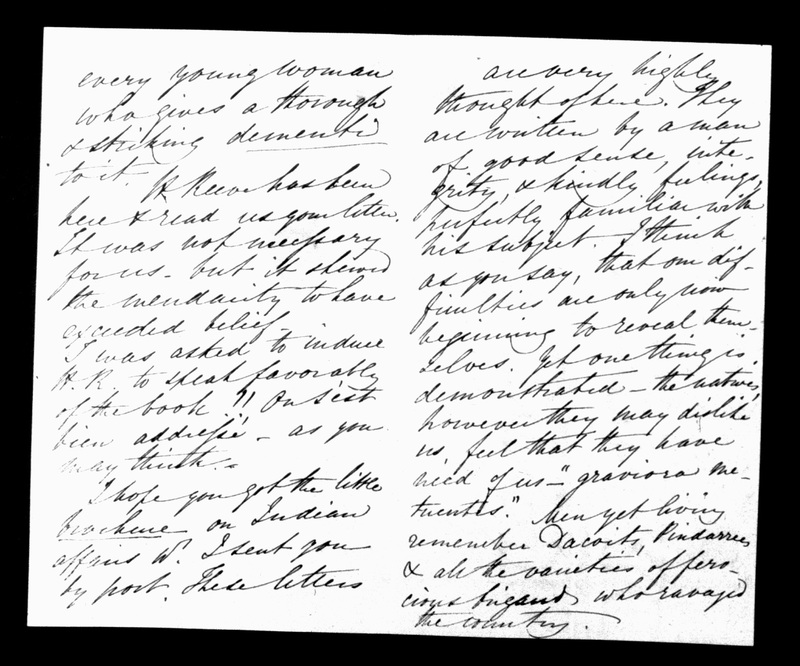 every young woman
who gives a thorough
& striking dementi
to it.
H Reeve has been
here & read us your letter.
It was not necessary
for us - but it shewed
the mendacity to have
exceeded belief -
I was asked to induce
H. R. to speak favorably
of the book ?! On s'est
bien addressé - as you
may think. -
I hope you got the little
brochure on Indian
affairs wh. I sent you
by post. These letters
are very highly
thought of here. They
are written by a man
of good sense, inte-
grity, & kindly feelings,
perfectly familiar with
his subject. I think
as you say, that our dif-
ficulties are only now
beginning to reveal them-
selves. Yet one thing is
demonstrated - the natives,
however they may dislike
us, feel that they have
need of us - "graviora me-
tuentes". Men yet living
remember Dacoits, Pindarrees
& all the varieties of fero-
cious brigands who ravaged
the country.